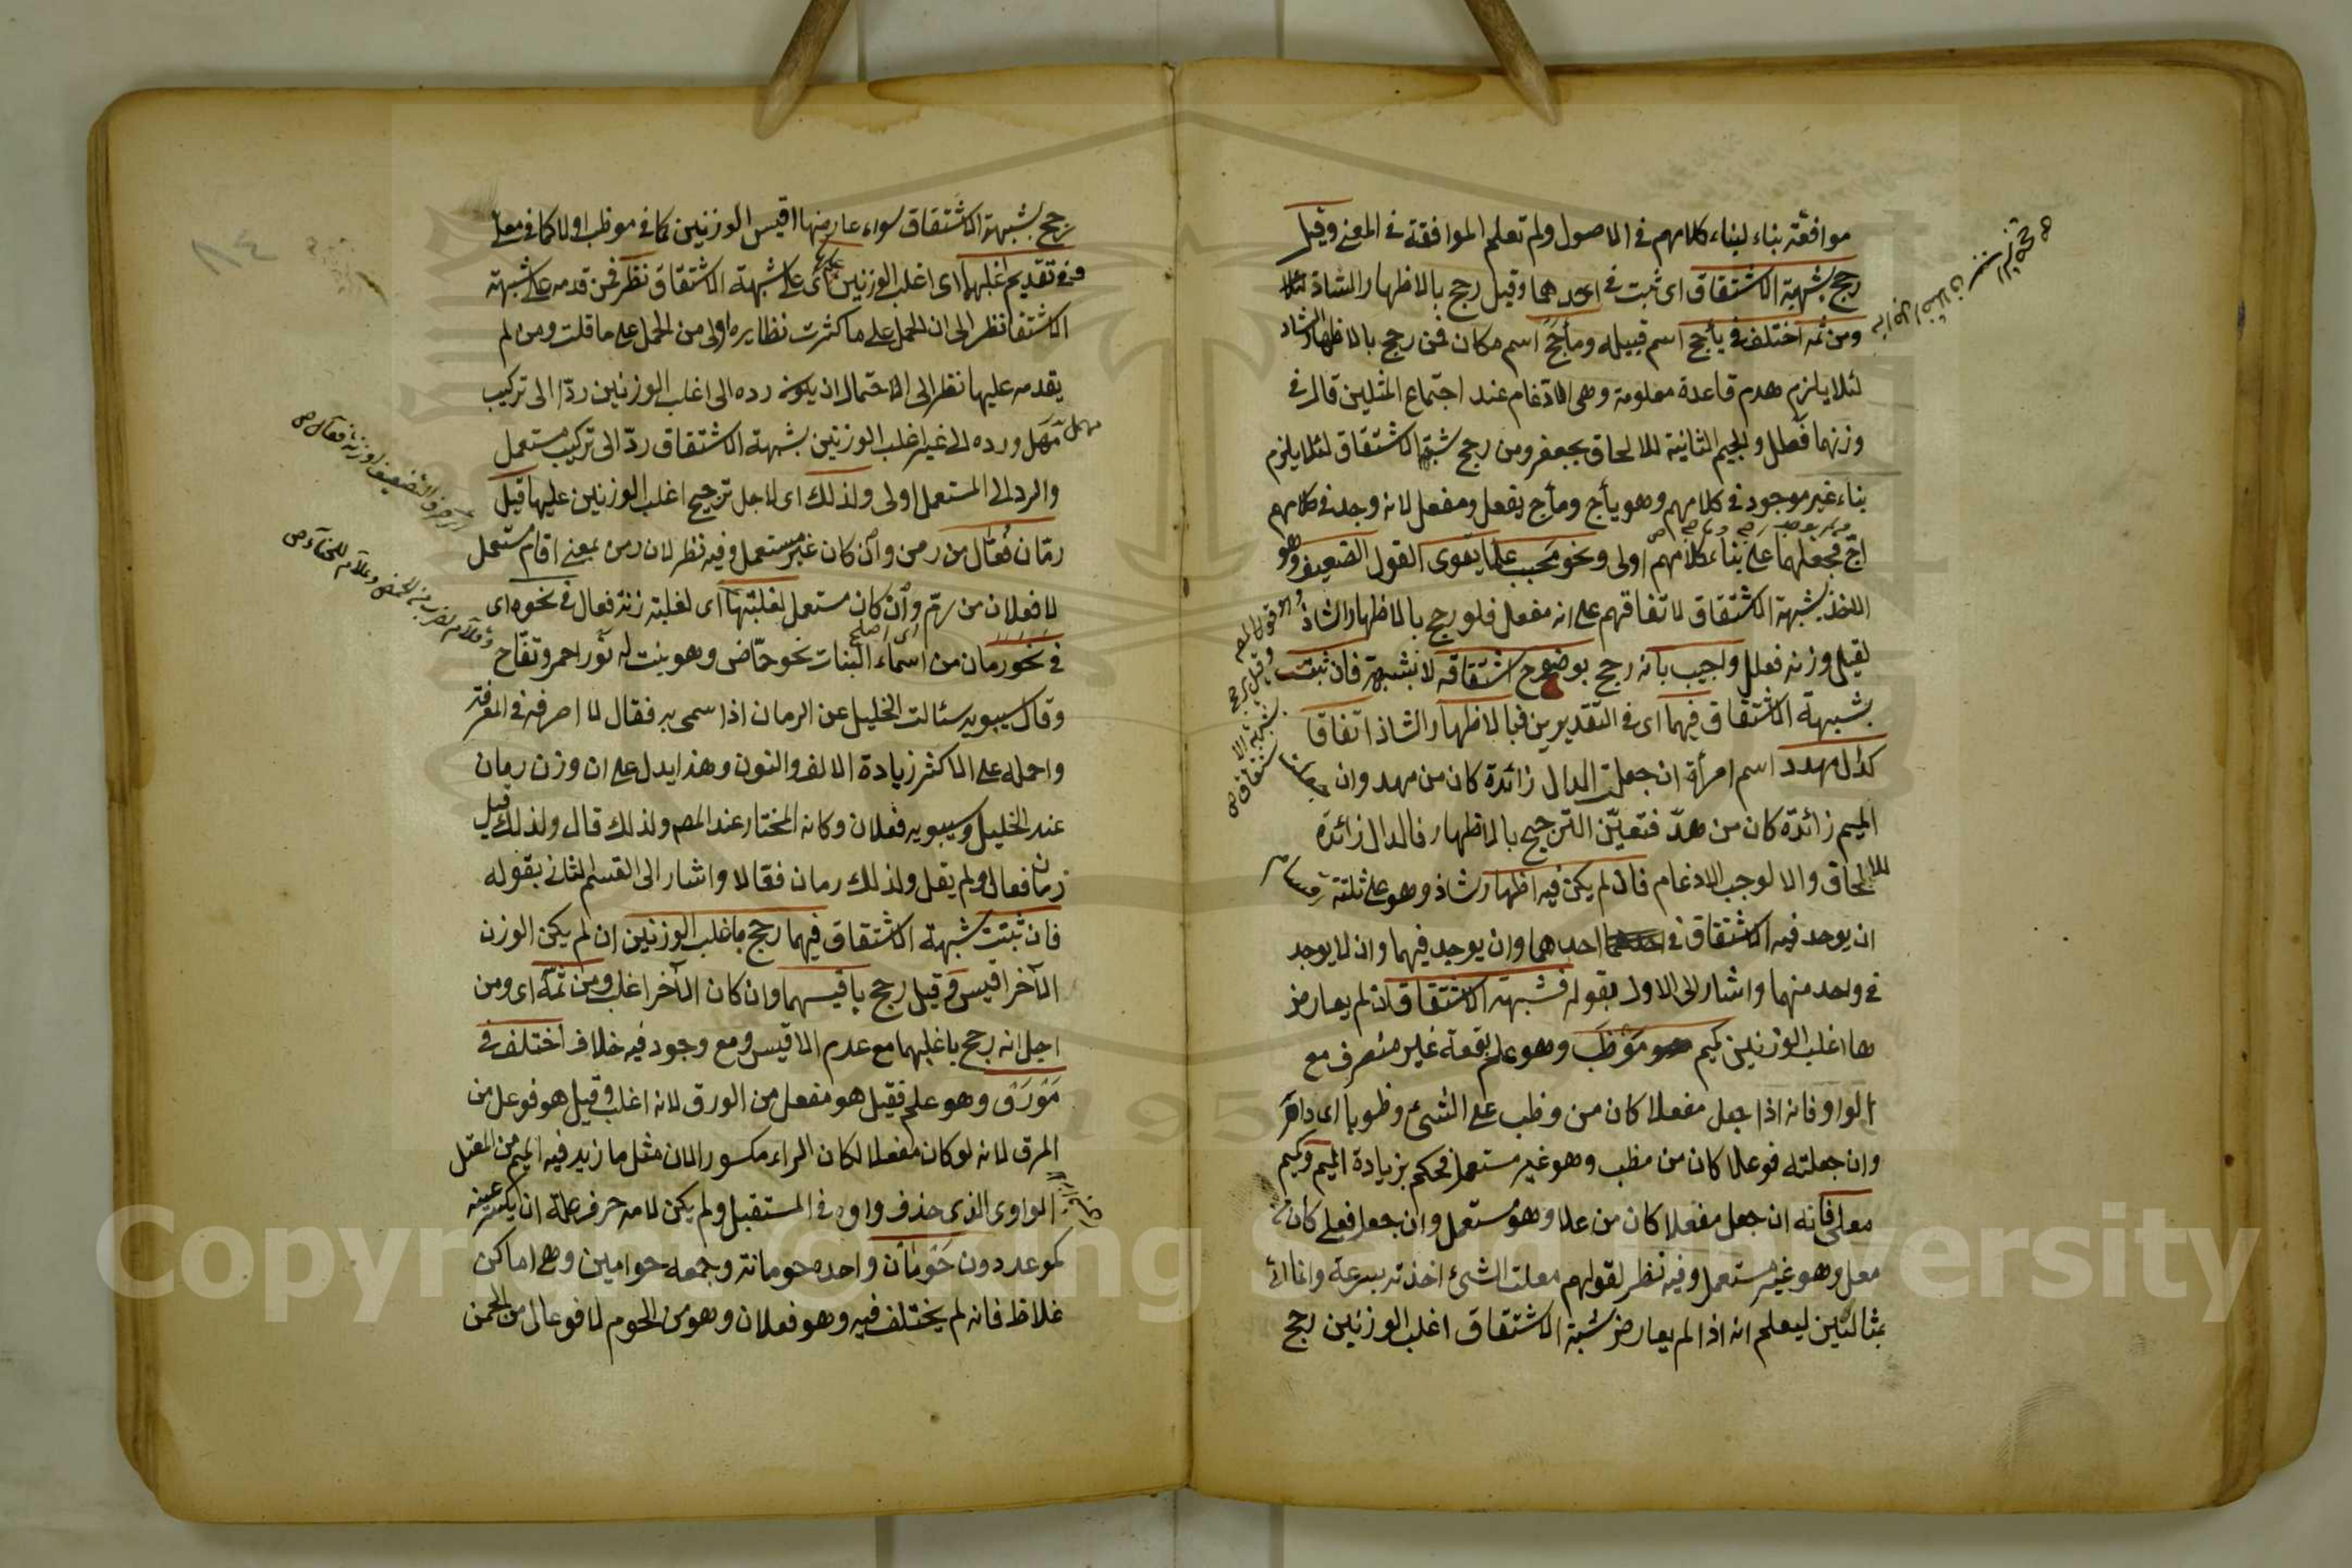 موافقة بناء لبناء كلامهم في الاصول ولم تعلم الموافقة في المعنى وقيل
رجح بشبهة الاشتقاق اى ثبت في احدهما وقيل رجح بالاظهار الشاذ
ومن ثمه اختلف في يأجج اسم قبيله ومأجج اسم مكان فمن رجح بالاظهار الشاذ
لئلا يلزم هدم قاعدة معلومة وهى الادغام عند اجتماع المثلين قال في
وزنهما فعلل والجيم الثانية للالحاق بجعفر ومن رجح شبهة الاشتقاق لئلا يلزم
بناء غير موجود في كلامهم وهو يأج ومأج يفعل ومفعل لانه وجد في كلامهم
اجّ فجعلهما على بناء كلامهم اولى ونحو محبب علما يقوى القول الضعيف وهو
الاخذ بشبهة الاشتقاق لاتفاقهم على انه مفعل فلو رجح بالاظهار الشاذ
لقيل وزنه فعلل واجيب بانه رجح بوضوح اشتقاقه لا بشبهة فان ثبتت
شبهة الاشتقاق فيهما اى في التقديرين فبالاظهار الشاذ اتفاقا
كدال مهدد اسم امرأة ان جعلت الدال زائدة كان من مهد وان
الميم زائدة كان من هدّ فتعيّن الترجيح بالاظهار فالدال زائدة
للالحاق والا لوجب الادغام فان لم يكن فيه اظهار شاذ وهو على ثلثة
ان يوجد فيه الاشتقاق في احدهما وان يوجد فيهما وان لا يوجد
في واحد منهما واشار الى الاول بقوله فشبهة الاشتقاق ان لم يعارض
ها اغلب الوزنين كميم موظب وهو علم بقعة غير منصرف مع
الواو فانه اذا جعل مفعلا كان من وظب على الشىء وظوبا اى داهر
وان جعلته فوعلا كان من مظب وهو غير مستعمل فحكم بزيادة الميم وكميم
معلى فانه ان جعل مفعلا كان من علا وهو مستعمل وان جعل فعلى كان من
معل وهو غير مستعمل وفيه نظر لقولهم معلت الشىء اخذته بسرعة وانما اتى
بمثالين ليعلم انه اذا لم يعارض شبهة الاشتقاق اغلب الوزنين رجح
وهو قول المص
وقيل يرجح
بشبهة الا
شتقاق ص
رجح بشبهة الاشتقاق سواء عارضها اقيس الوزنين كما في موظب او لا كما في معلى
وفي تقديم اغلبهما اى اغلب الوزنين على شبهة الاشتقاق نظر فمن قدمه على شبهة
الاشتقا نظر الى ان الحمل على ما كثرت نظايره اولى من الحمل على ما قلت ومن لم
يقدمه عليها نظر الى الاحتمال ان يكون رده الى اغلب الوزنين ردّا الى تركيب
مهمل ورده الى غير اغلب الوزنين بشبهة الاشتقاق ردّ الى تركيب مستعمل
والرد الى المستعمل اولى ولذلك اى لاجل ترجيح اغلب الوزنين عليها قيل
رمّان فُعّال من رمن وان كان غير مستعمل وفيه نظر لان رمن بمعنى اقام مستعمل
لا فعلان من رمّ وان كان مستعمل لغلبتها اى لغلبة زنة فعال في نحوه اى
في نحو رمان من اسماء النبات نحو حمّاض وهو بنت له نور احمر وتفّاح
وقال سيبويه سئالت الخليل عن الرمان اذا سمى به فقال لا اصرفه في المعرفة
واحمله على الاكثر زيادة الالف والنون وهذا يدل على ان وزن رمان
عند الخليل وسيبويه فعلان وكانه المختار عند المصه ولذلك قال ولذلك قيل
رمان فعال ولم يقل ولذلك رمان فعّالا واشار الى القسم الثانى بقوله
فان ثبتت شبهة الاشتقاق فيهما رجح باغلب الوزنين ان لم يكن الوزن
الآخر اقيس وقيل رجح باقيسهما وان كان الآخر اغلب ومن ثمّه اى ومن
اجل انه رجح باغلبهما مع عدم الاقيس ومع وجود فيه خلاف اختلف في
مَوْرَق وهو علم فقيل هو مفعل من الورق لانه اغلب وقيل هو فوعل من
المرق لانه لو كان مفعلا لكان الراء مكسورا لان مثل ما زيد فيه الميم من المعتل
الواوى الذى حذف واوه في المستقبل ولم يكن لامه حرف علة ان يكسر عينه
كموعد دون حَوْمَان واحده حومانة وجمعه حوامين وهى اماكن
غلاظ فانه لم يختلف فيه وهو فعلان وهو من الحوم لا فوعال من الحمن